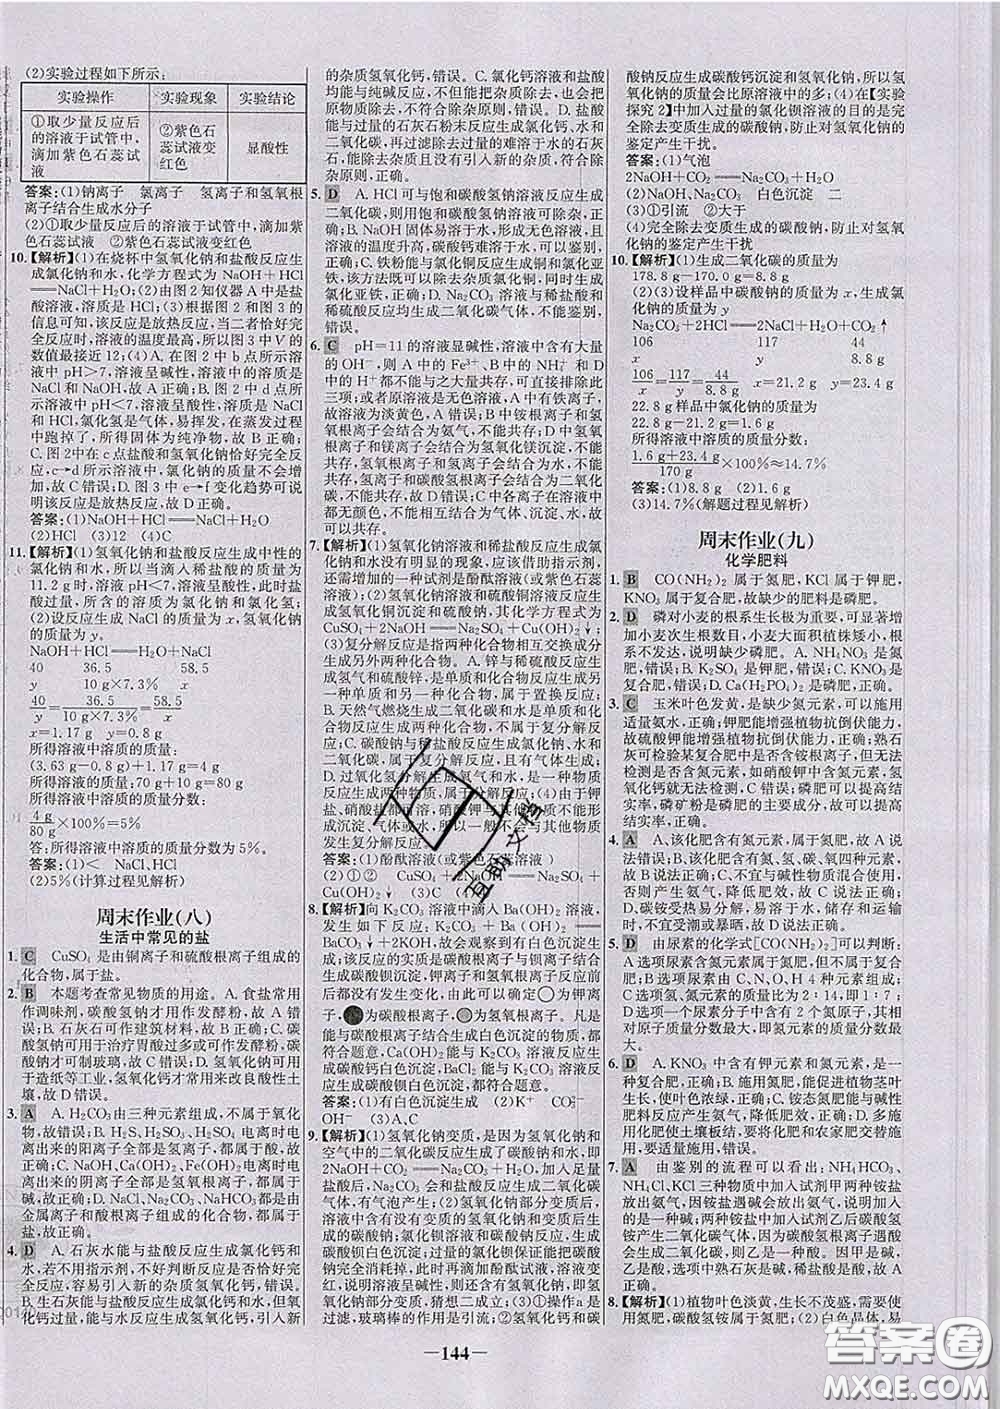 (2)实验过程如下所示:
实验操作 实验现象 实验结论
①取少量反应后
的溶液于试管中,
滴加紫色石蕊试
液
②紫色石
蕊试液变
红色
显酸性
答案:(1)钠离子 氯离子 氢离子和氢氧根
离子结合生成水分子
(2)①取少量反应后的溶液于试管中,滴加紫
色石蕊试液 ②紫色石蕊试液变红色
10.【解析】(1)在烧杯中氢氧化钠和盐酸反应生
成氯化钠和水,化学方程式为 NaOH+HCl
══NaCl+H₂O;(2)由图2知仪器A中是盐
酸溶液,溶质是 HCl;(3)根据图2和图3的
信息可知,该反应是放热反应,当二者恰好完
全反应时,溶液的温度最高,所以图3中V的
数值最接近12;(4)A.在图2中a点所示溶
液中 pH>7,溶液呈碱性,溶液中溶质是 NaCl
和 NaOH,故A正确;B.图2中d点所
示溶液中 pH<7,溶液呈酸性,溶质是 NaCl
和 HCl,氯化氢是气体,易挥发,在蒸发过程
中跑掉了,所得固体为纯净物,故B正确;
C.图2中在c点溶液中氢氧化钠和盐酸恰好
反应,c→d所示溶液中,氯化钠的质量不再增
加,故C错误;D.图3中e→f变化趋势可说
明该反应是放热反应,故D正确。
答案:(1)NaOH+HCl══NaCl+H₂O
(2)HCl (3)12 (4)C
11.【解析】(1)氢氧化钠和盐酸反应生成中性的
氯化钠和水,所以当滴入稀盐酸的质量为
11.2 g时,所得溶液的pH<7,此时盐酸
过量,所含的溶质为氯化钠和氯化氢;
(2)设反应生成 NaCl 的质量为x,氢氧化钠
的质量为y。
NaOH+HCl══H₂O+NaCl
40 36.5 58.5
y 10 g×7.3% x
40/y=36.5/(10 g×7.3%)=58.5/x
x=1.17 g y=0.8 g
所得溶液中溶质的质量:
(3.63 g-0.8 g)+1.17 g=4 g
所得溶液的质量:70 g+10 g=80 g
所得溶液中溶质的质量分数:
4 g/80 g×100%=5%
答:所得溶液中溶质的质量分数为5%。
答案:(1)< NaCl、HCl
(2)5%(计算过程见解析)
周末作业(八)
生活中常见的盐
1. C CuSO₄是由铜离子和硫酸根离子组成的
化合物,属于盐。
2. B 本题考查常见物质的用途。A.食盐常用
作调味剂,碳酸氢钠才用作发酵粉,故A错
误;B.石灰石可作建筑材料,故B正确;C.碳
酸氢钠可用于治疗胃酸过多或可作发酵粉,碳
酸钠才可制玻璃,故C错误;D.氢氧化钠可用
于造纸等工业,氢氧化钙才常用来改良酸性土
壤,故D错误。
3. A A.H₂CO₃由三种元素组成,不属于氧化
物,故错误;B.H₂S、H₂SO₃、H₂SO₄电离时电
离出的阳离子全部是氢离子,属于酸,故正确;
C.NaOH、Ca(OH)₂、Fe(OH)₂电离时电离
出的阴离子全部是氢氧根离子,属于碱,故
正确;D.Na₂CO₃、Na₂SO₄、NaHCO₃都是由
金属离子和酸根离子组成的化合物,都属于
盐,故正确。
4. D A.石灰水能与盐酸反应生成氯化钙和
水,若不用指示剂,不能判断氢氧化钙是否恰好
完全反应,容易引入新的杂质氢氧化钙,错误。
B.生石灰能与盐酸反应生成氯化钙和水,但氧
化钙过量,能与水反应生成氢氧化钙,引入新
的杂质氢氧化钙,错误。C.氯化钙溶液和盐酸
均能与纯碱反应,不但能把杂质除去,也会把
原物质除去,不符合除杂原则,错误。D.盐酸
能与过量的石灰石粉末反应生成氯化钙、水和
二氧化碳,完全反应后再过滤过量的难溶于水的石灰
石,能除去杂质且没有引入新的杂质,符合除
杂原则,正确。
5. D A.HCl可与饱和碳酸氢钠溶液反应生成
二氧化碳,则用饱和碳酸氢钠溶液可除杂,正
确;B.NaOH固体易溶于水,形成无色溶液,
溶液的温度升高,碳酸钙不溶于水,可以鉴别,
正确;C.铁粉能与氯化铜反应生成铜和氯化亚
铁,该方法既可以除去杂质氯化铜,同时生成
氯化亚铁,正确;D.Na₂CO₃溶液与稀盐酸和
稀硫酸反应均生成二氧化碳气体,不能鉴别,
错误。
6. C pH=11的溶液显碱性,溶液中含有大量
的OH⁻,则A中的Fe³⁺、B中的NH₄⁺和D
中的H⁺都不能与之大量共存,可直接排除此
三项;或者由无色溶液可知,A中有铁离子,故
溶液为淡黄色,A错误;B中铵根离子和氢
氧根离子结合会生成氨气,不能共存;D中氢氧
根离子和镁离子会结合为氢氧化镁沉淀,不能
共存,氢氧根离子和氢离子会结合为水,不能
共存,碳酸根离子和氢离子会结合为二氧化碳,
不能共存,故D错误;C中各离子在溶液中
都无颜色,不能共同结合为气体、沉淀、水,故
可以共存。
7.【解析】(1)氢氧化钠溶液和稀盐酸反应生成氯
化钠和水没有明显的现象,应该借助指示剂,
还需增加的一种试剂是酚酞溶液(或紫色石蕊
溶液);(2)氢氧化钠溶液和硫酸铜溶液反应生
成氢氧化铜沉淀和硫酸钠,其化学方程式为
CuSO₄+2NaOH══Na₂SO₄+Cu(OH)₂↓;
(3)复分解反应是两种化合物相互交换成分生
成另外两种化合物。A.锌与稀硫酸反应生
成氢气和硫酸锌,是单质和化合物反应,生成
另一种单质和化合物,属于置换反应;
B.天然气燃烧生成二氧化碳和水,虽然反应生
成两种化合物,不属于复分解反应;
C.碳酸钠与稀盐酸反应生成氯化钠、水和
二氧化碳,属于复分解反应,是复分解反应;
D.过氧化氢分解生成氧气和水,是一种物质
生成两种物质,属于分解反应;(4)由于钾
盐、硝酸盐都可溶,硝酸钾与其他物质不能形
成沉淀、气体或水,所以一般不会与其他物质
发生复分解反应。
答案:(1)酚酞溶液(或紫色石蕊溶液)
(2)①② CuSO₄+2NaOH══Na₂SO₄+
Cu(OH)₂↓ (3)C (4)C
8.【解析】向K₂CO₃溶液中滴入Ba(OH)₂溶液,
发生如下反应:K₂CO₃+Ba(OH)₂══
BaCO₃↓+2KOH,故会观察到有白色沉淀生
成,由图示可知,碳酸根离子与钡离子结合生
成碳酸钡白色沉淀,钾离子和氢氧根离子反应前
后都没有发生变化,由此可以确定 为钾离
子, 为碳酸根离子, 为氢氧根离子。凡是
能与碳酸根离子结合生成白色沉淀的物质,都
符合题意。Ca(OH)₂能与K₂CO₃溶液反应
生成碳酸钙白色沉淀,BaCl₂能与K₂CO₃溶液
反应生成碳酸钡白色沉淀,都符合题意。
答案:(1)有白色沉淀生成 (2)K⁺ CO₃²⁻
OH⁻ (3)A、C
9.【解析】(1)氢氧化钠变质,是因为氢氧化钠和
空气中的二氧化碳反应生成了碳酸钠和水,即
2NaOH+CO₂══Na₂CO₃+H₂O,加入足量
盐酸后,盐酸与碳酸钠反应,会产生二氧化碳
气体,有气泡产生;(2)氢氧化钠部分变质后,
溶液中含有没变质的氢氧化钠和变质生成的
碳酸钠,加入过量的氯化钡溶液与碳酸钠反应
生成碳酸钡白色沉淀,过量的氯化钡保证能把碳酸
钠全部消耗掉,此时再滴加酚酞试液,溶液变
红,说明溶液呈碱性,则仍有氢氧化钠,即氢
氧化钠部分变质,猜想二成立;(3)①操作a是
过滤,玻璃棒的作用是引流;②氢氧化钙和碳
酸钠反应生成碳酸钙沉淀和氢氧化钠,所以氢
氧化钠的质量会比原溶液中的多;(4)在【实验
探究2】中加入过量的氯化钡溶液的目的是完
全除去变质生成的碳酸钠,防止对氢氧化钠的
鉴定产生干扰。
答案:(1)气泡
2NaOH+CO₂══Na₂CO₃+H₂O
(2)NaOH、Na₂CO₃ 白色沉淀 二
(3)①引流 ②大于
(4)完全除去变质生成的碳酸钠,防止对氢氧
化钠的鉴定产生干扰
10.【解析】(1)生成二氧化碳的质量为
178.8 g-170.0 g=8.8 g
(2)(3)设样品中碳酸钠的质量为x,生成氯
化钠的质量为y
Na₂CO₃+2HCl══2NaCl+H₂O+CO₂↑
106 117 44
x y 8.8 g
106/x=117/y=44/8.8 g x=21.2 g y=23.4 g
22.8 g样品中氯化钠的质量为
22.8 g-21.2 g=1.6 g
所得溶液中溶质的质量分数:
(1.6 g+23.4 g)/170 g×100%≈14.7%
答案:(1)8.8 g (2)1.6 g
(3)14.7%(解题过程见解析)
周末作业(九)
化学肥料
1. B CO(NH₂)₂属于氮肥,KCl属于钾肥,
KNO₃属于复合肥,故缺少的肥料是磷肥。
2. D 磷对小麦的根系生长极为重要,可显著增
加小麦次生根数目,小麦大面积植株矮小,根
系不发达,说明缺少磷肥。A.NH₄NO₃是氮
肥,错误;B.K₂SO₄是钾肥,错误;C.KNO₃是
复合肥,错误;D.Ca(H₂PO₄)₂是磷肥,正确。
3. C 玉米叶色发黄,是缺少氮元素,可以施用
适量氨水,正确;钾肥能增强植物抗倒伏能力,
故硫酸钾能增强植物抗倒伏能力,正确;熟石
灰可检验某复合肥中是否含铵根离子,但无法
检测是否含氮元素,如硝酸钾中含氮元素,氢
氧化钙就无法检测,错误;磷肥可以提高植物结
实率,磷矿粉是磷肥,可提高植物的结实率,
正确。
4. A A.该化肥含有氮元素,属于氮肥,故A说
法错误;B.该化肥中含有氮、氢、碳、氧四种元
素,故B说法正确;C.该化肥不能与碱性物质混合使用,
否则产生氨气,降低肥效,故C说法正确;D.碳
酸氢铵易分解,易溶于水,故储存和运输时,
不宜受潮或暴晒,故D说法正确。
5. D 由尿素的化学式[CO(NH₂)₂]可以判断:
A选项尿素中含有氮元素,属于氮肥,不是复合肥;
B选项尿素由C、N、O、H 4种元素组成;
C选项氢、氮元素的质量比为2∶14,即1∶7;
D选项一个尿素分子中含有2个氮原子,其相
对原子质量分数最大,即氮元素的质量分数
最大。
6. D A.KNO₃中含有钾元素和氮元素,是一
种复合肥,正确;B.施用氮肥,能促进植物茎叶
生长,使叶色浓绿,正确;C.铵态氮肥能与碱性
物质反应产生氨气,降低肥效,正确;D.多施用
化肥会使土壤板结,要将化肥和农家肥交替施
用,要适量施用,错误。
7. A 由鉴别的流程可以看出:NH₄HCO₃、
NH₄Cl、KNO₃加入试剂甲后两种铵盐
放出氨气,因铵盐遇碱会放出氨气,说明加入
的是一种碱;两种铵盐中加入试剂乙后碳酸氢
铵产生二氧化碳气体,因碳酸氢根离子遇酸
会生成二氧化碳,则乙是一种酸。因甲是碱,
乙是酸,而熟石灰是碱,稀盐酸是酸,故选A。
8.【解析】(1)植物叶色淡黄,生长不茂盛,需要使
用氮肥,碳酸氢铵属于氮肥;(2)白色晶体,可
—144—
答案圈
MXQE.COM